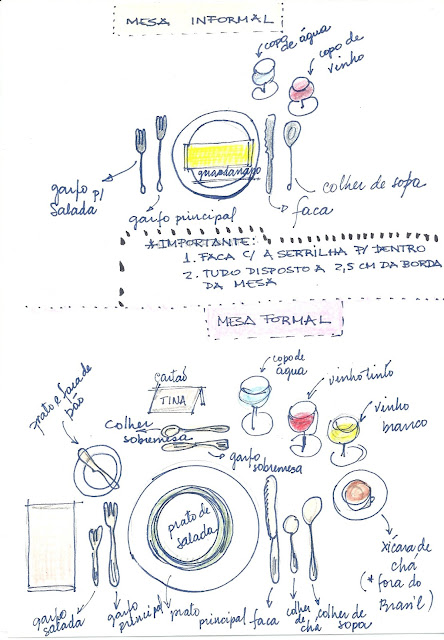 MESA INFORMAL
copo
de água
copo de
vinho
guardanapo
garfo p/
salada
garfo principal
faca
colher de sopa
* IMPORTANTE:
1. FACA C/ A SERRILHA P/ DENTRO
2. TUDO DISPOSTO A 2,5 CM DA BORDA
DA MESA
MESA FORMAL
prato e faca de
pão
cartão
TINA
copo de
água
vinho tinto
vinho
branco
colher
sobremesa
garfo
sobremesa
prato de
salada
xícara de
chá
(* fora do
Brasil)
garfo
salada
garfo
principal
prato
principal
faca
colher
de
chá
colher
de sopa